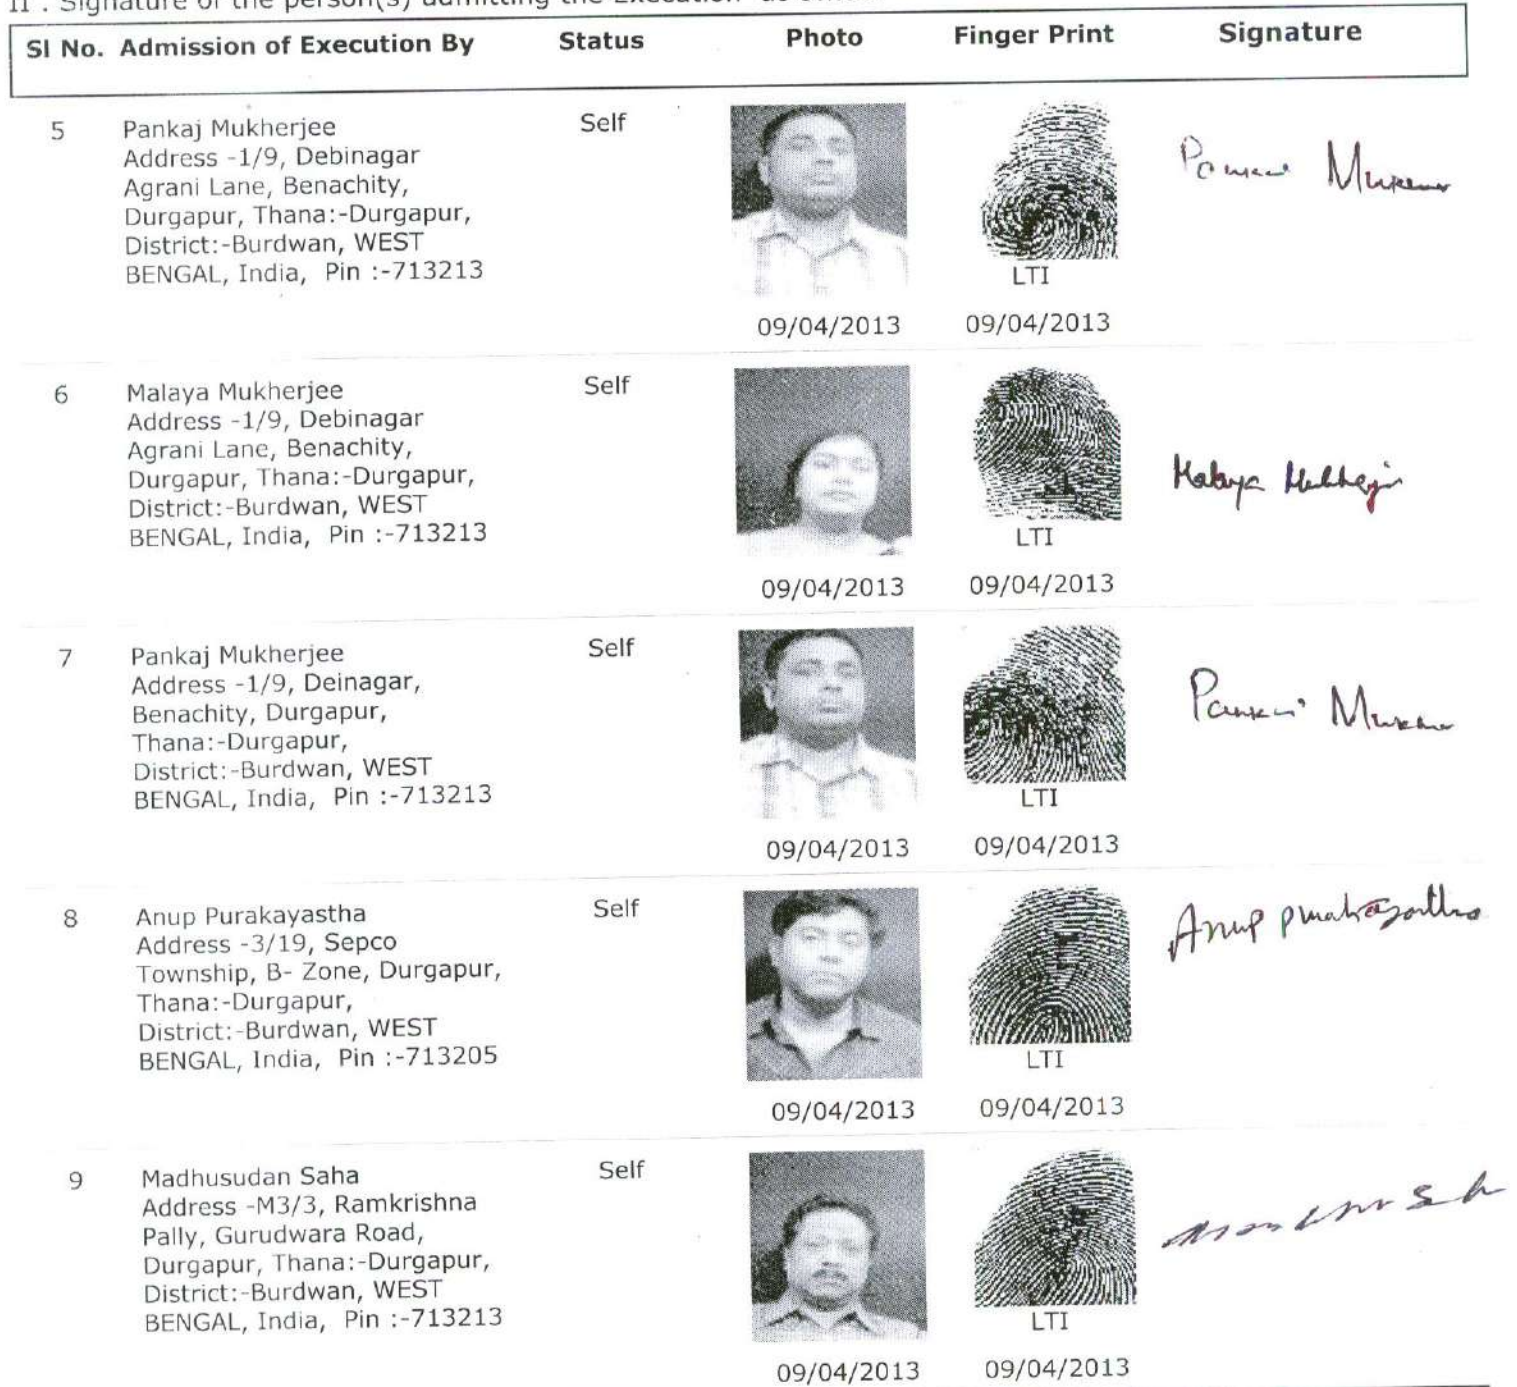 II . Signature of the person(s) admitting the Execution
Sl No. Admission of Execution By Status Photo Finger Print Signature
5 Pankaj Mukherjee Self
Address -1/9, Debinagar
Agrani Lane, Benachity,
Durgapur, Thana:-Durgapur,
District:-Burdwan, WEST
BENGAL, India, Pin :-713213
LTI
09/04/2013 09/04/2013
6 Malaya Mukherjee Self
Address -1/9, Debinagar
Agrani Lane, Benachity,
Durgapur, Thana:-Durgapur,
District:-Burdwan, WEST
BENGAL, India, Pin :-713213
Malaya Mukherjee
LTI
09/04/2013 09/04/2013
7 Pankaj Mukherjee Self
Address -1/9, Deinagar,
Benachity, Durgapur,
Thana:-Durgapur,
District:-Burdwan, WEST
BENGAL, India, Pin :-713213
LTI
09/04/2013 09/04/2013
8 Anup Purakayastha Self
Address -3/19, Sepco
Township, B- Zone, Durgapur,
Thana:-Durgapur,
District:-Burdwan, WEST
BENGAL, India, Pin :-713205
Anup Purakayastha
LTI
09/04/2013 09/04/2013
9 Madhusudan Saha Self
Address -M3/3, Ramkrishna
Pally, Gurudwara Road,
Durgapur, Thana:-Durgapur,
District:-Burdwan, WEST
BENGAL, India, Pin :-713213
LTI
09/04/2013 09/04/2013